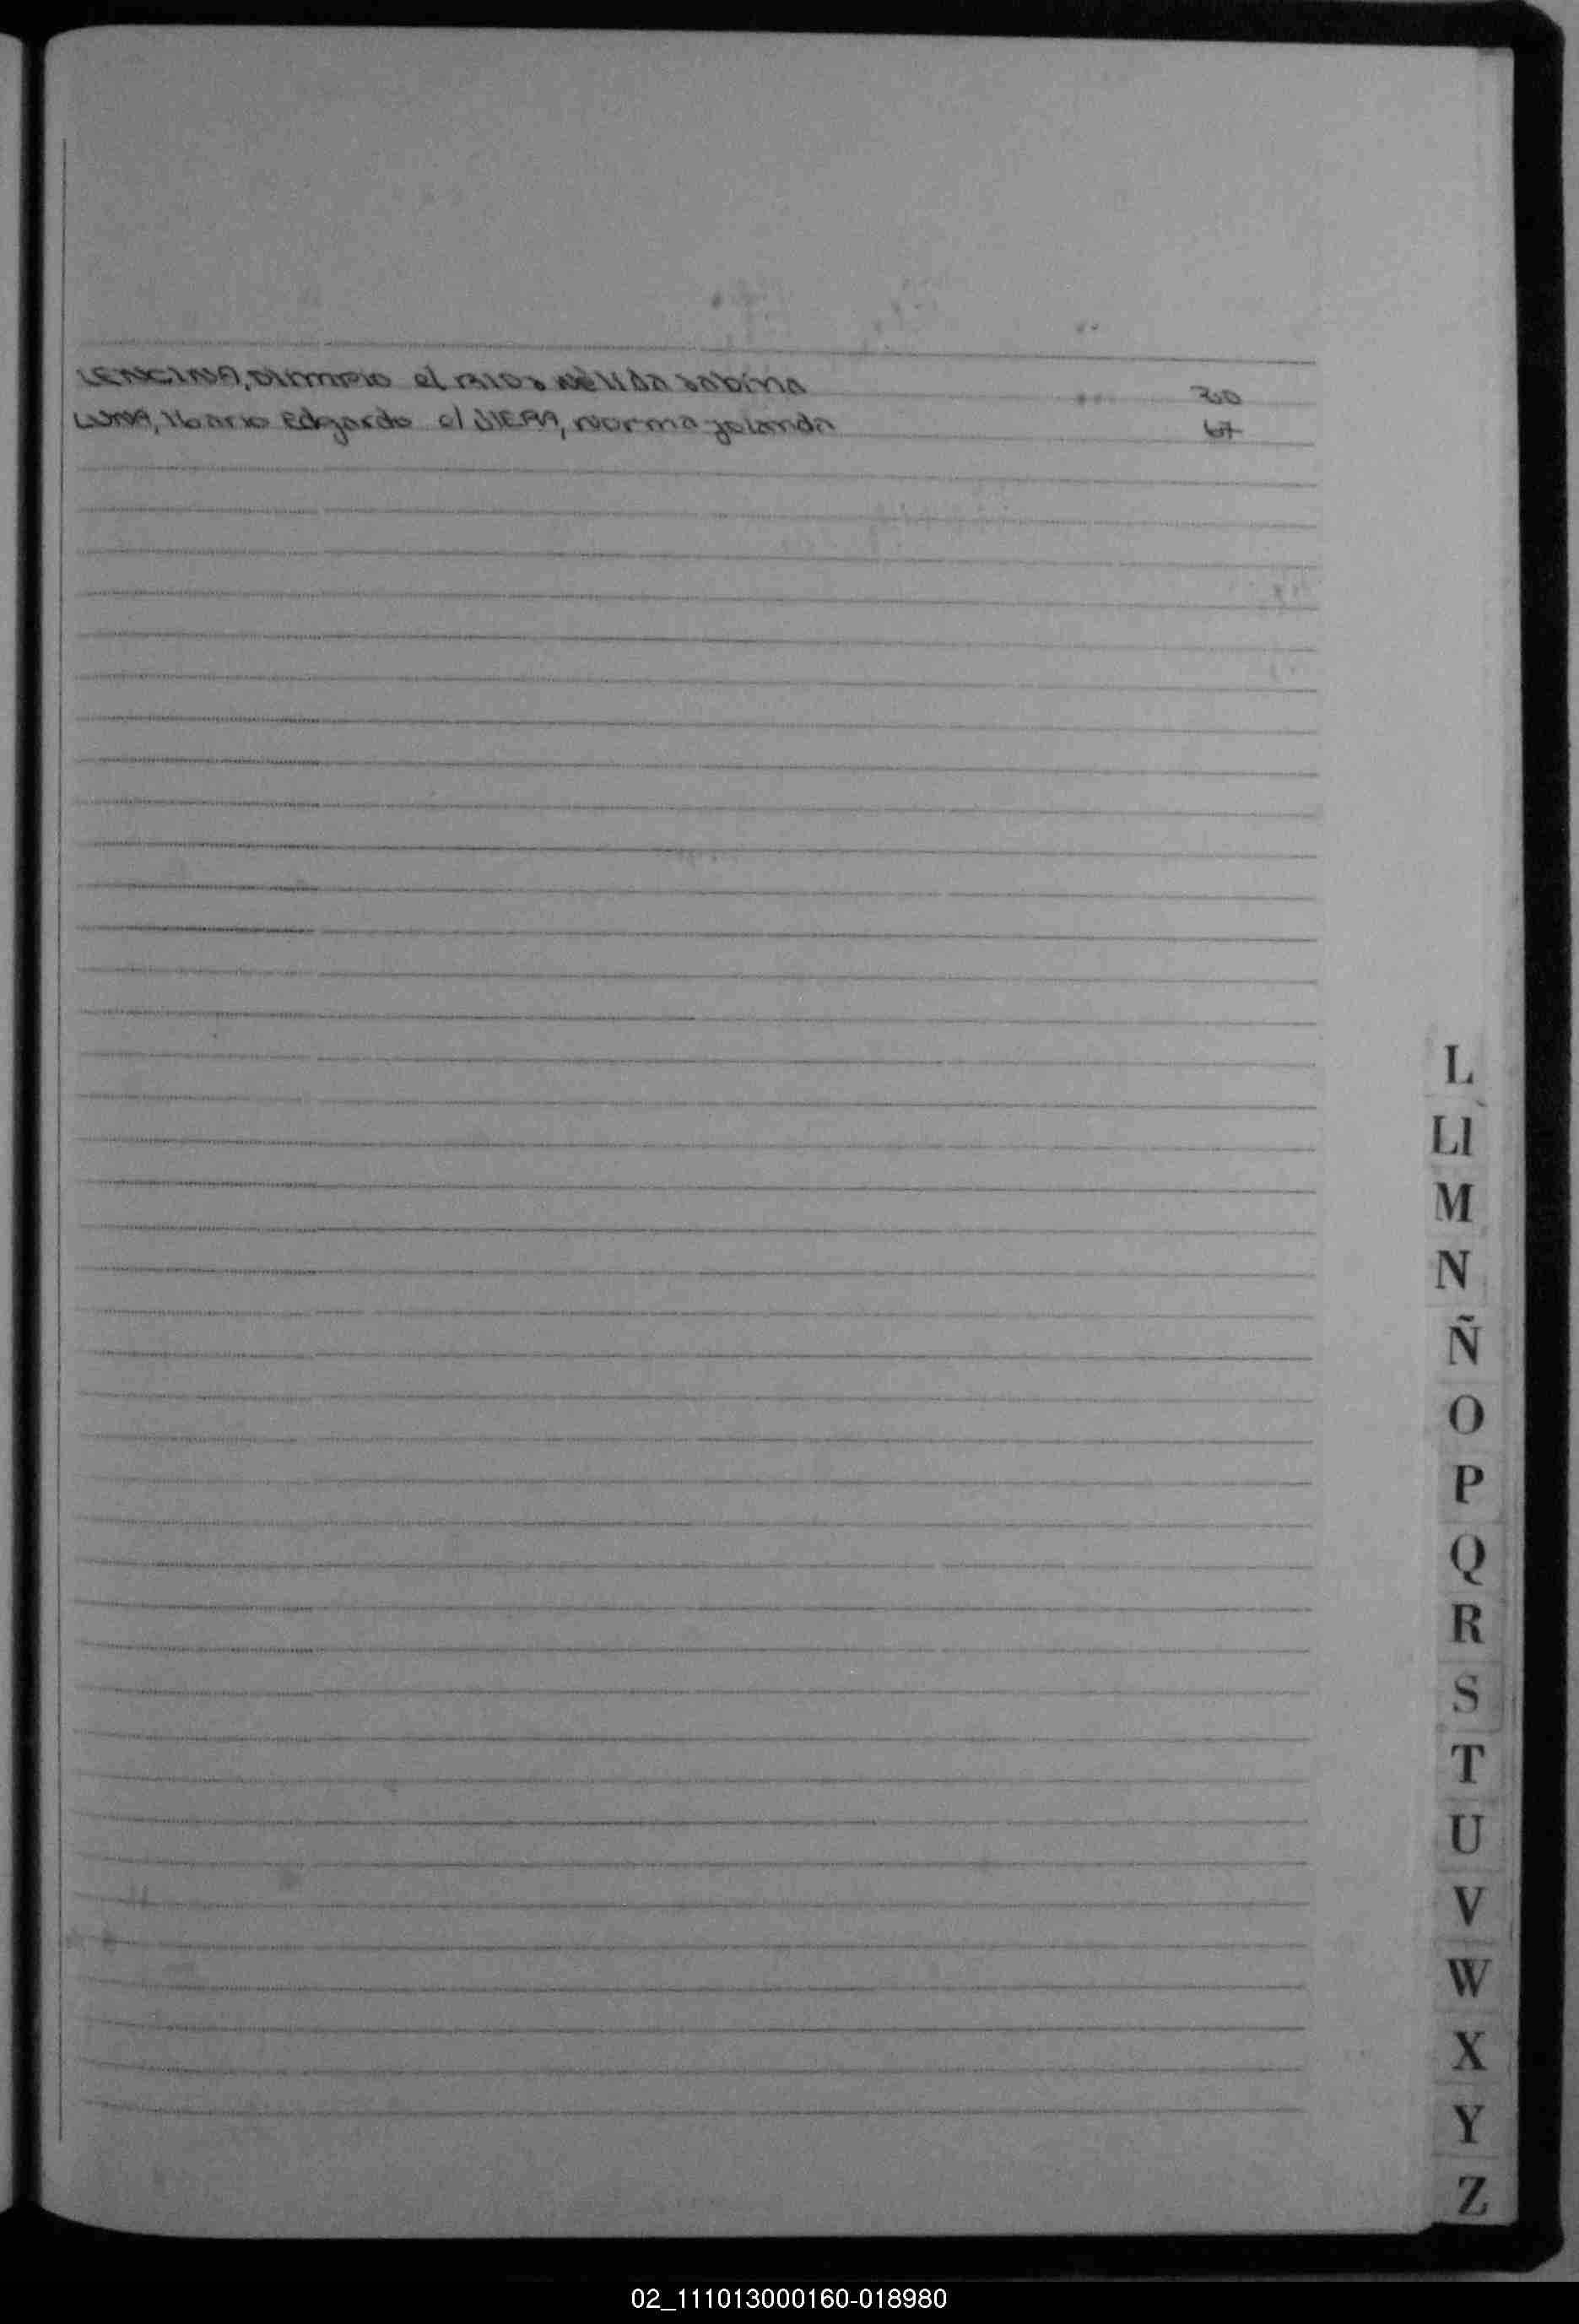 LENCINA, Olimpio c/ RIOS Nélida Sabina 30
LUNA, Mario Edgardo c/ Norma Yolanda 67
L
Ll
M
N
Ñ
O
P
Q
R
S
T
U
V
W
X
Y
Z
02_111013000160-018980